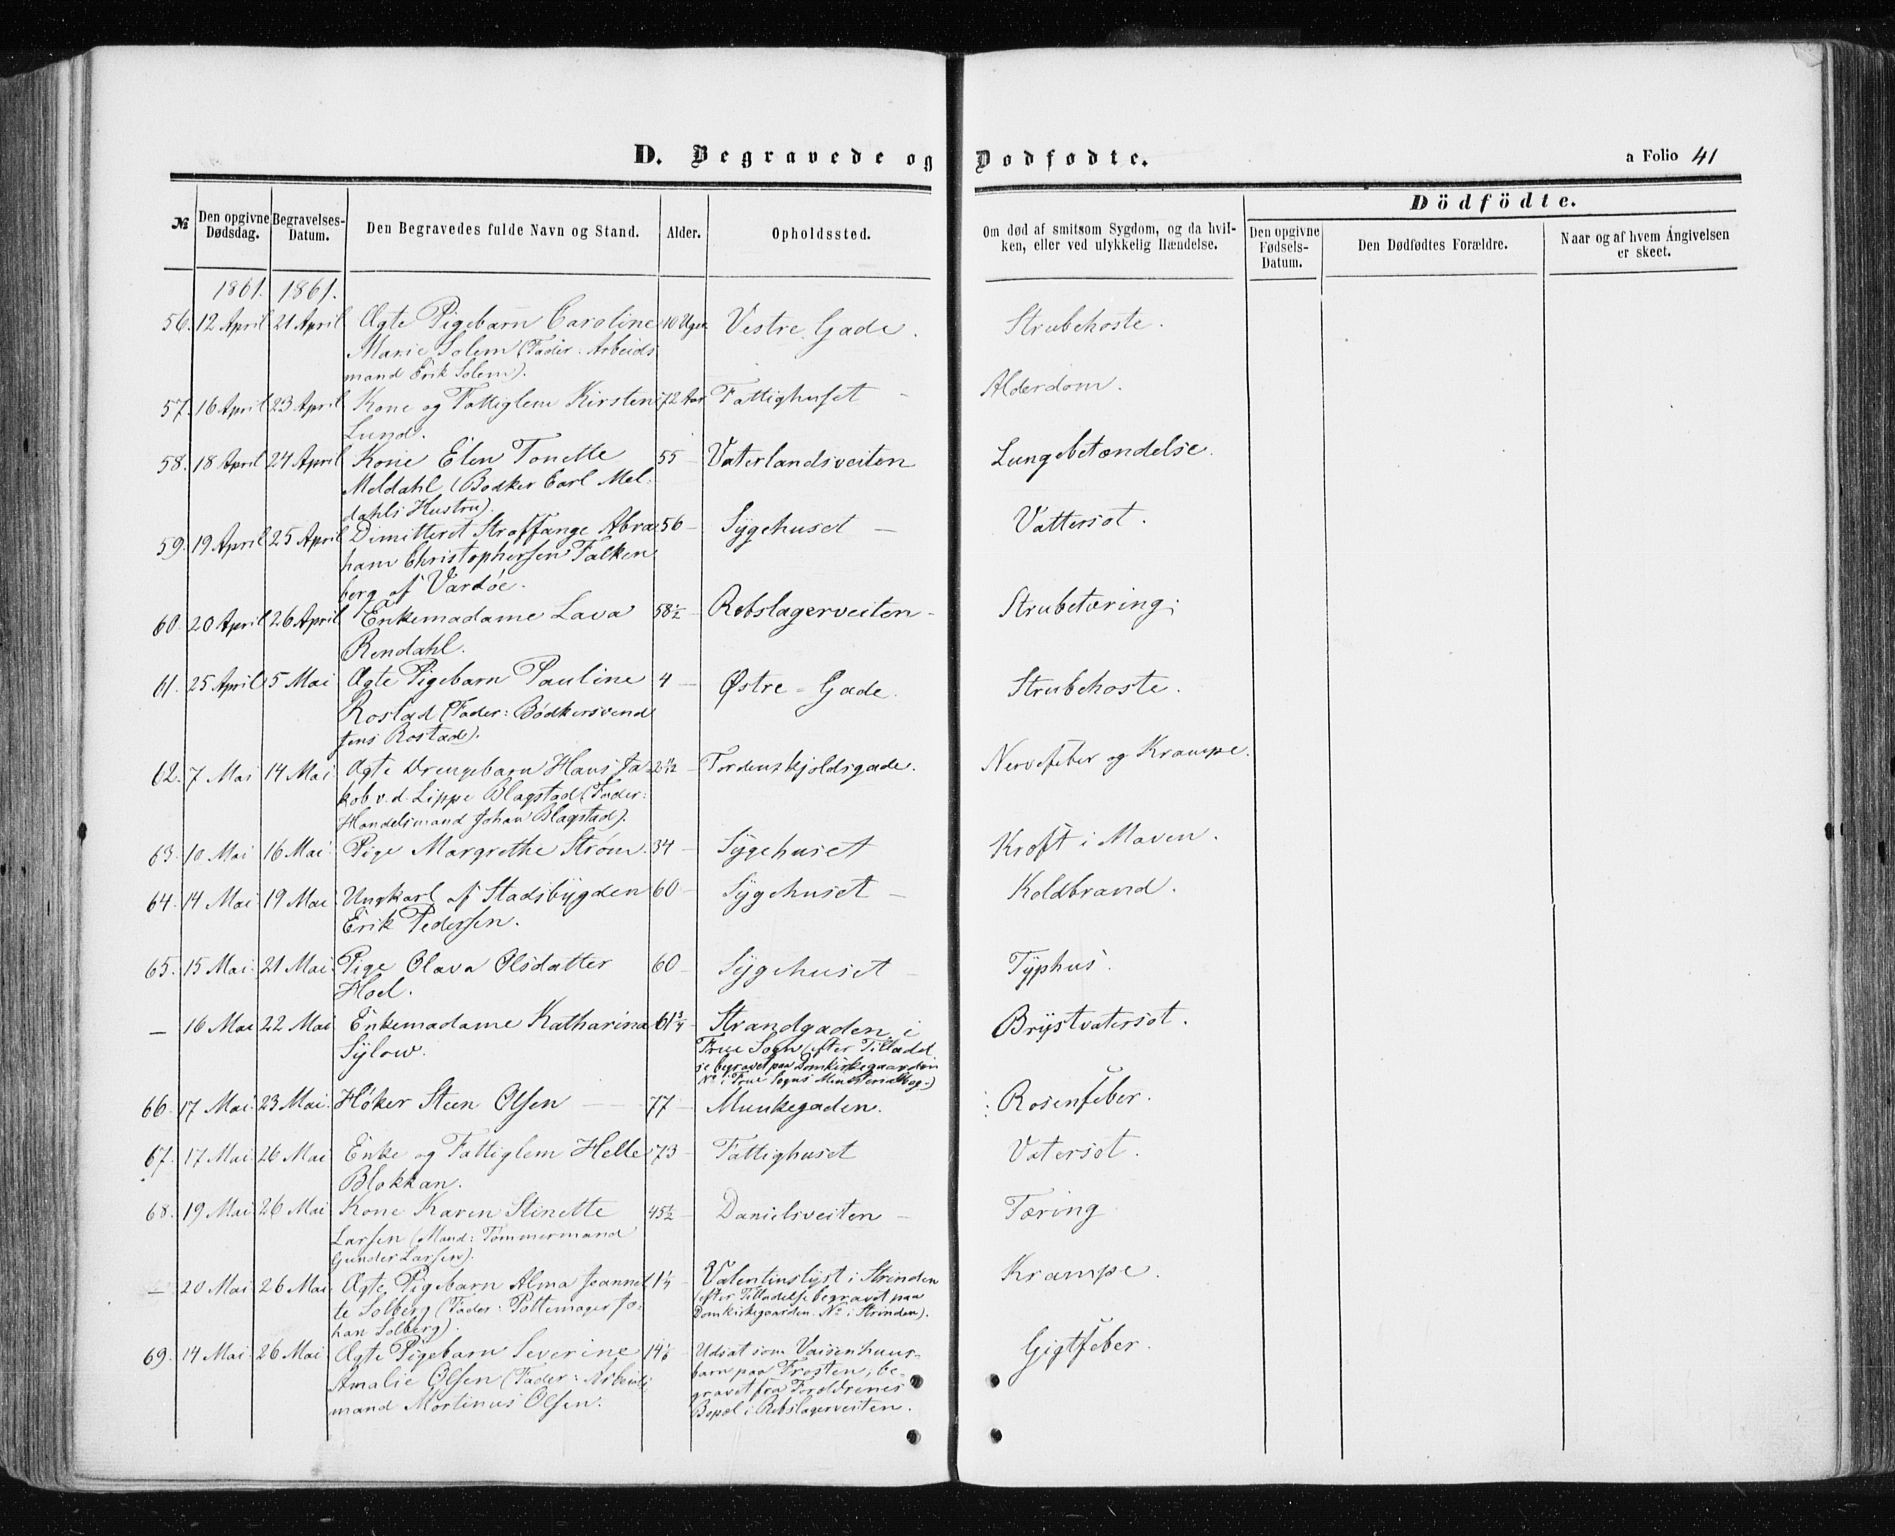 D. Begravede og Dødfødte.
a Folio 41
№
Den opgivne Dødsdag.
Begravelses-Datum.
Den Begravedes fulde Navn og Stand.
Alder.
Opholdssted.
Om død af smitsom Sygdom, og da hvilken, eller ved ulykkelig Hændelse.
Dödfödte.
Den opgivne Fødsels-Datum.
Den Dødfødtes Forældre.
Naar og af hvem Angivelsen er skeet.
1861. 1861.
56. 12 April 21 April Ægte Pigebarn Caroline 10 Uger Vestre Gade. Strubehoste.
Marie Solem (Fader: Arbeids
mand Erik Solem).
57. 16 April 23 April Kone og Fattiglem Kirsten 72 Aar Fattighuset - Alderdom.
Lund.
58. 18 April 24 April Kone Elen Tonette 55 Vaterlandsveiten Lungebetændelse.
Meldahl (Bødker Carl Mel-
dahls Hustru).
59. 19 April 25 April Dimitteret Straffange Abra 56 - Sygehuset - Vattersot.
ham Christophersen Falken
berg af Vardøe.
60. 20 April 26 April Enkemadame Lava 58½ Rebslagerveiten - Strubetæring.
Rendahl.
61. 25 April 5 Mai Ægte Pigebarn Pauline 4 - Østre Gade. Strubehoste.
Rostad (Fader: Bødkersvend
Jens Rostad).
62. 7 Mai 14 Mai Ægte Drengebarn Hans Ja- 2½ Tordenskjoldsgade. Nervefeber og Krampe.
kob v. d. Lippe Blagstad (Fader:
Handelsmand Johan Blagstad).
63. 10 Mai 16 Mai Pige Margrethe Strøm. 34 - Sygehuset Kræft i Maven.
64. 14 Mai 19 Mai Ungkarl af Stadsbygden 60 - Sygehuset - Koldbrand.
Erik Pedersen.
65. 15 Mai 21 Mai Pige Olava Olsdatter 60 - Sygehuset - Typhus.
Hoel.
- 16 Mai 22 Mai Enkemadame Katharina 61¾ Strandgaden i Brystvatersot.
Sylow. Frue Sogn (efter Tilladel
se begravet paa Domkirkegaarden
№ i Frue Sogns Ministerialbog.)
66. 17 Mai 23 Mai Høker Steen Olsen - 77 - Munkegaden. Rosenfeber.
67. 17 Mai 26 Mai Enke og Fattiglem Helle 73 - Fattighuset Vatersot.
Blokkan.
68. 19 Mai 26 Mai Kone Karen Stinette 45½ - Danielsveiten - Tæring
Larsen (Mand: Tømmermand
Gunder Larsen).
- 20 Mai 26 Mai Ægte Pigebarn Alma Jeannet 1¼ - Valentinslyst i Strinden Krampe.
te Solberg (Fader: Pottemager Jo- (efter Tilladelse begravet paa
han Solberg). Domkirkegaarden. № i Strinden).
69. 14 Mai 26 Mai Ægte Pigebarn Severine Udsat som Vaisenhuus- Gigtfeber.
Amalie Olsen (Fader: Arbeids barn paa Frosten, be-
mand Mortinus Olsen. gravet fra Forældrenes
Bopæl i Rebslagerveiten.